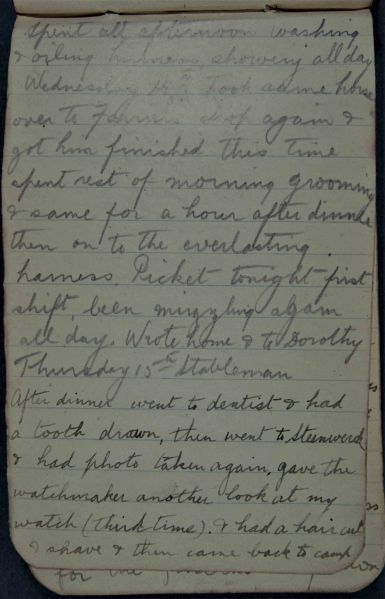 spent all afternoon washing
& oiling harness, showery all day
Wednesday 14th Took same horse
over to Farriers shop again &
got him finished this time
spent rest of morning grooming
& same for a hour after dinner
then on to the everlasting
harness. Picket tonight first
shift, been mizzling again
all day. Wrote home & to Dorothy
Thursday 15th Stableman
After dinner went to dentist & had
a tooth drawn, then went to Steenwerck
& had photo taken again, gave the
watchmaker another look at my
watch (third time). & had a hair cut
& shave & then came back to camp
for the